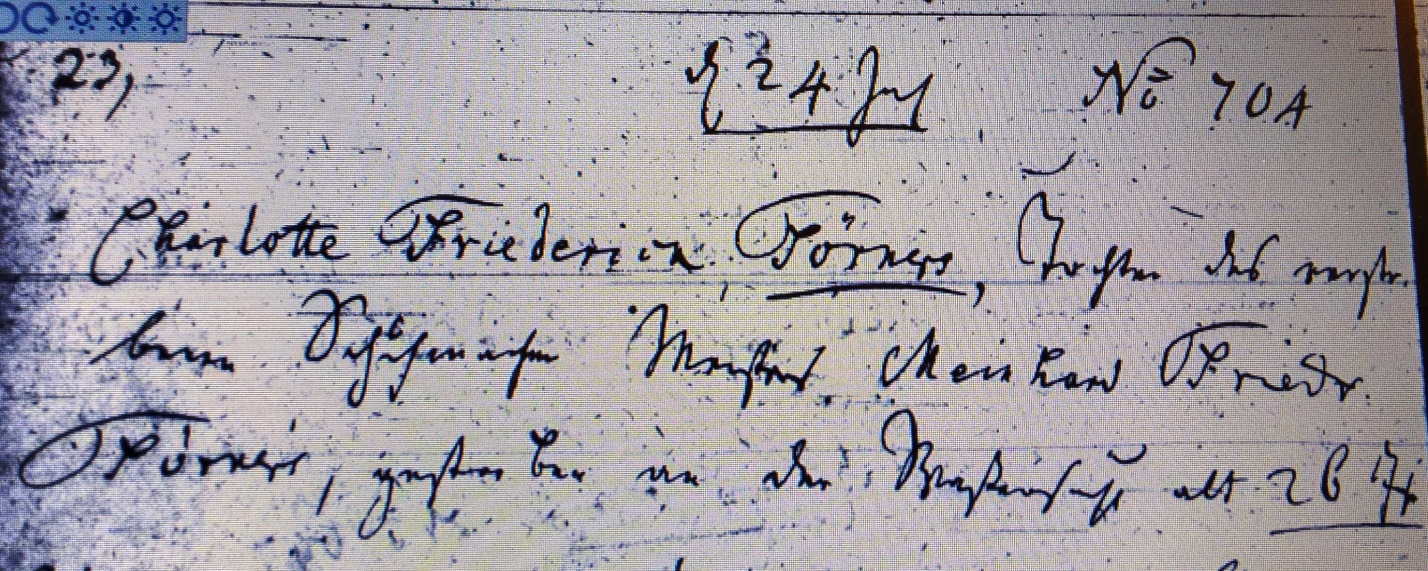 23, d 24 Jul No 70A
Charlotte Friederica Förners, Tochter des verstor-
benen Schuhmacher Meisters Meinhard Friedr.
Förners, gestorben an der alt 26 J